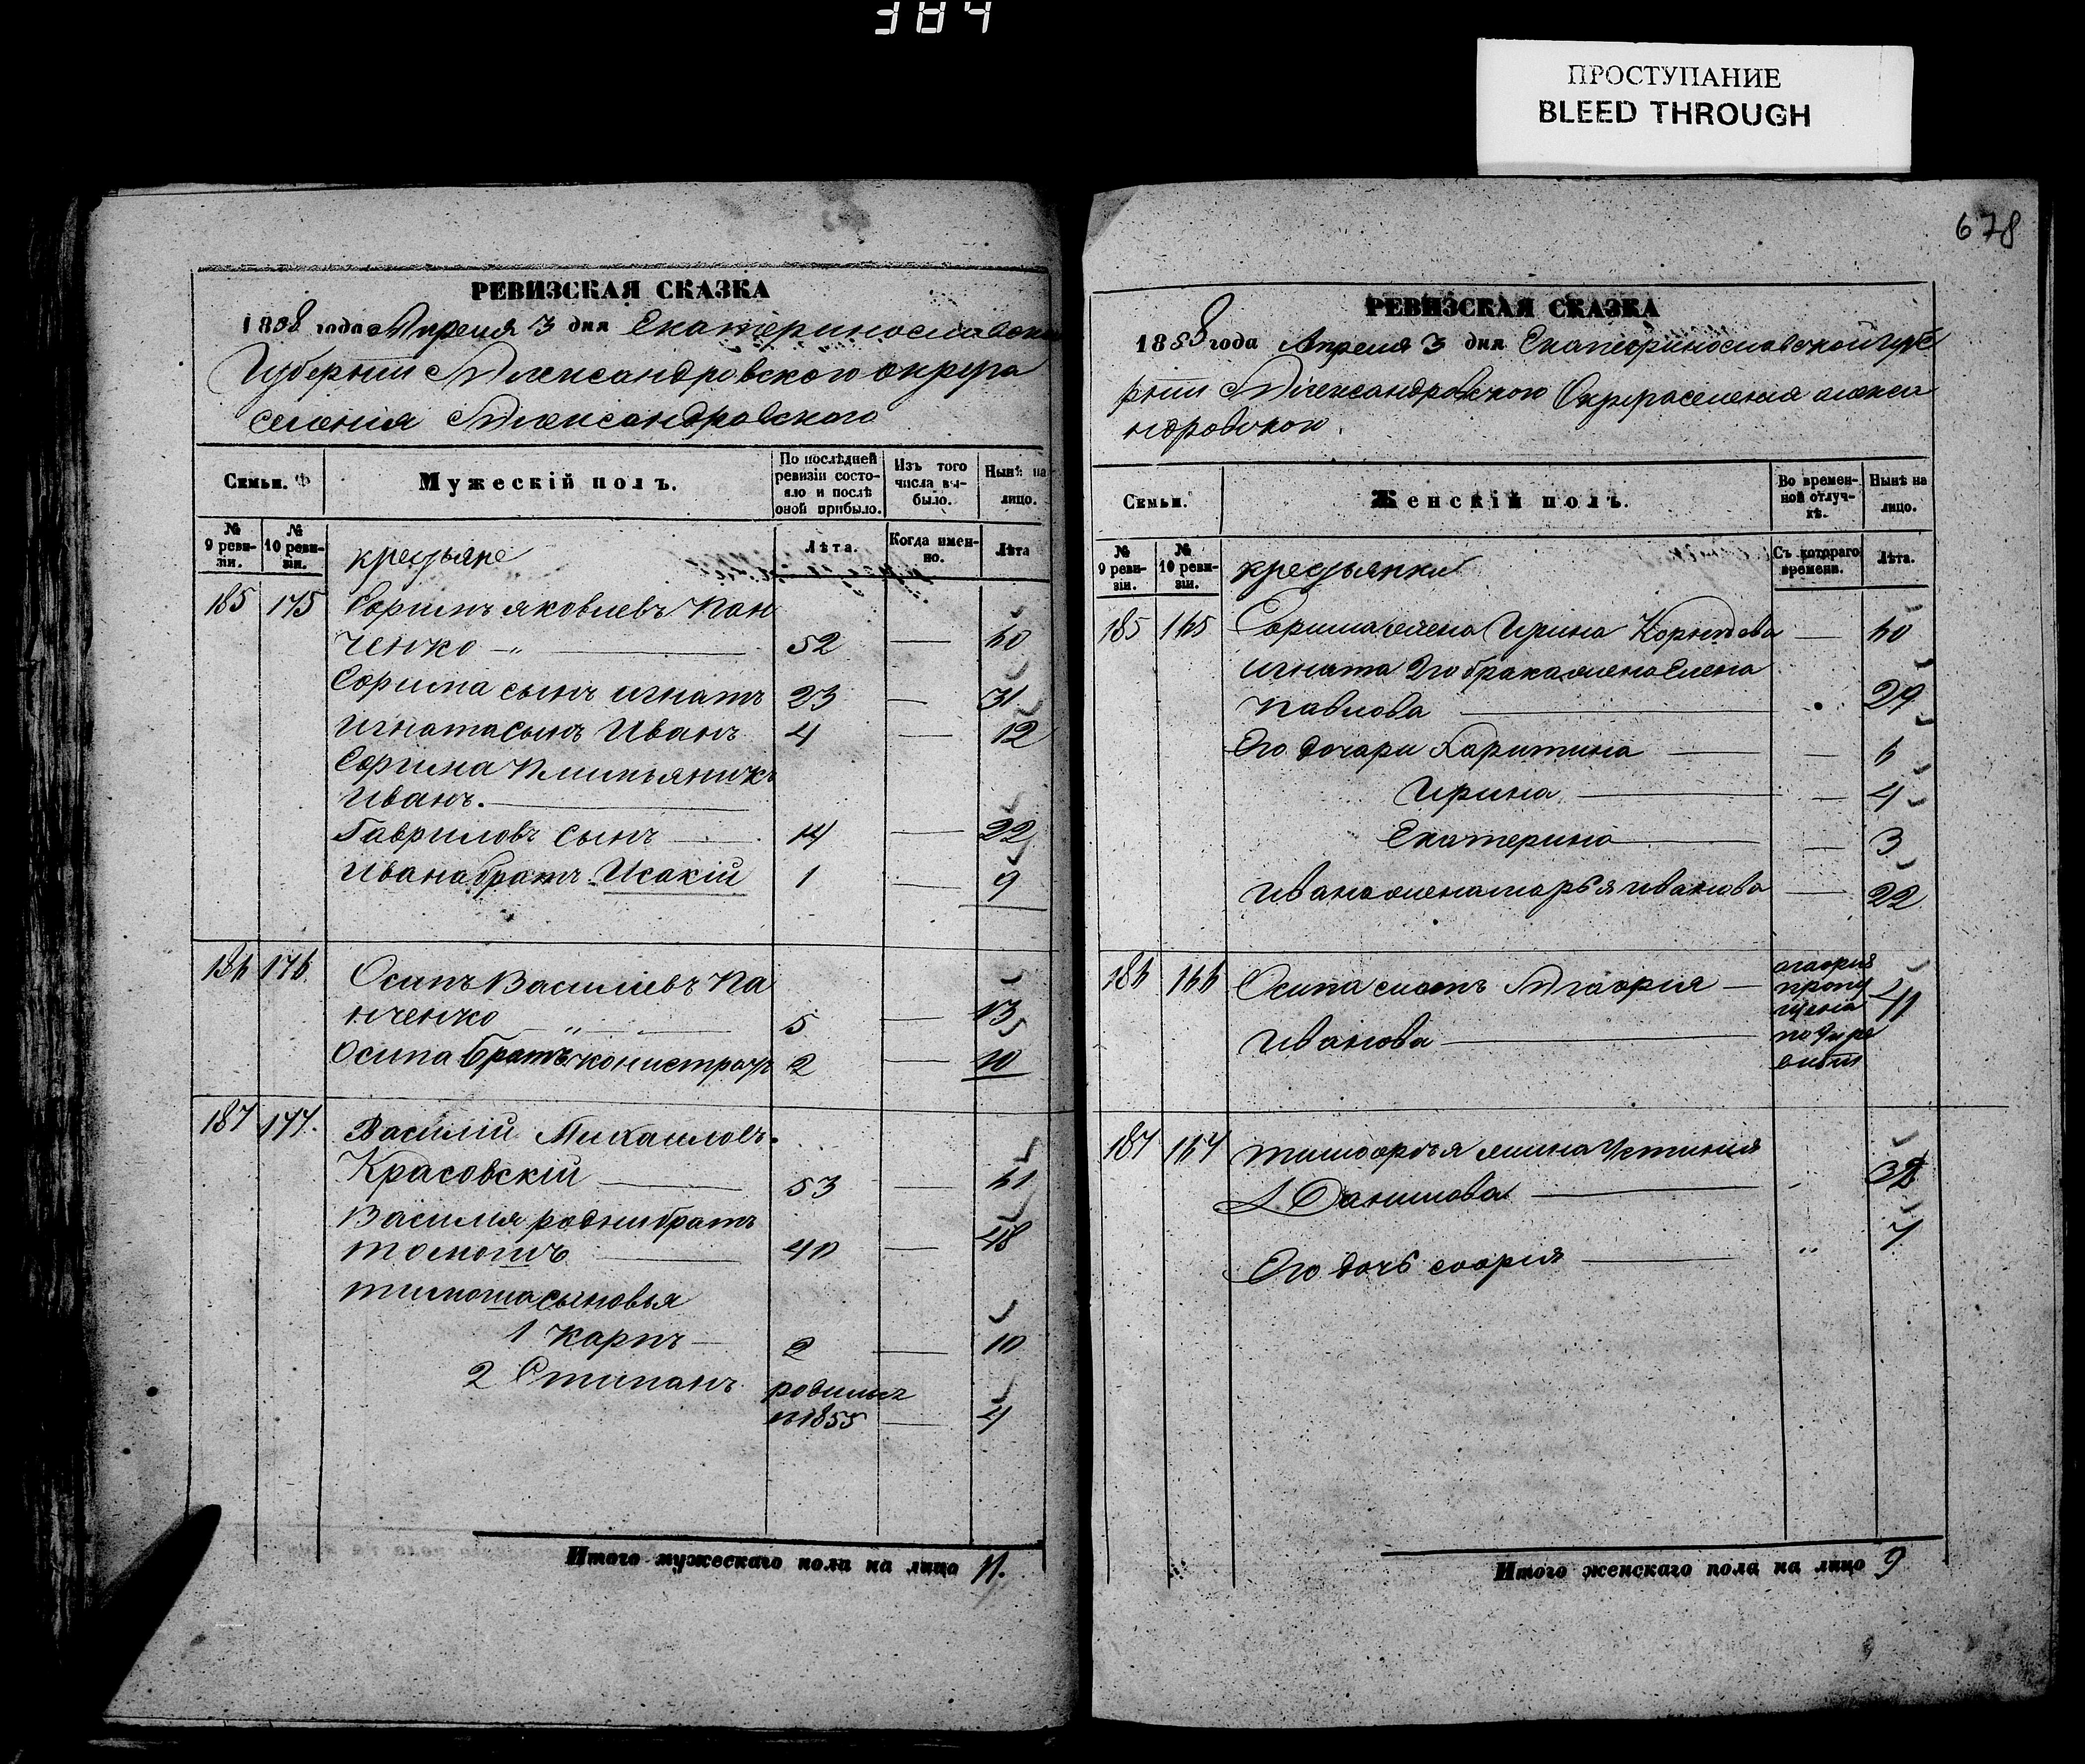 384
ПРОСТУПАНИЕ
BLEED THROUGH
РЕВИЗСКАЯ СКАЗКА
1858 года Апреля 3 дня Екатеринославской
Губернии Александровского округа
селения Александровского
Семьи.
Мужескій полъ.
По послѣдней ревизіи состояло и послѣ оной прибыло.
Изъ того числа выбыло.
Нынѣ на лицо.
№ 9 ревизіи.
№ 10 ревизіи.
крестьяне
Лѣта.
Когда именно.
Лѣта
185 175 Яковлевъ Пан
ченко 52 60
сынъ Игнатъ 23 31
Игната сынъ Иванъ 4 12
Племьяникъ
Иванъ.
Гавриловъ сынъ 14 22
Ивана братъ Исакій 1 9
186 176 Осипъ Василіевъ Па
нченко 5 13
Осипа братъ 2 10
187 177. Василій Михаиловъ.
Красовскій 53 61
Василія родни братъ
40 48
сыновья
1 Карпъ 2 10
2 Степанъ родился
1855 4
Итого мужескаго пола на лицо 11.
678
РЕВИЗСКАЯ СКАЗКА
1858 года Апреля 3 дня Екатеринославской губе
рнии Александровского Округа селения алекса
ндровского.
Семьи.
Женскій полъ.
Во временной отлучкѣ.
Нынѣ на лицо.
№ 9 ревизіи.
№ 10 ревизіи.
крестьянки
Съ котораго времени.
Лѣта.
185 165 жена Ирина 60
Игната 2го брака жена Елена
Павлова 29
Его дочери Харитина 6
Ирина 4
Екатерина 3
Ивана жена Марья Иванова 22
186 166 Осипа мать Агафия 41
Иванова
агафия
пропу
щена
по 9й ре
визии
187 167 жена Устиния
Данилова 32
Его дочь софия 7
Итого женскаго пола на лицо 9